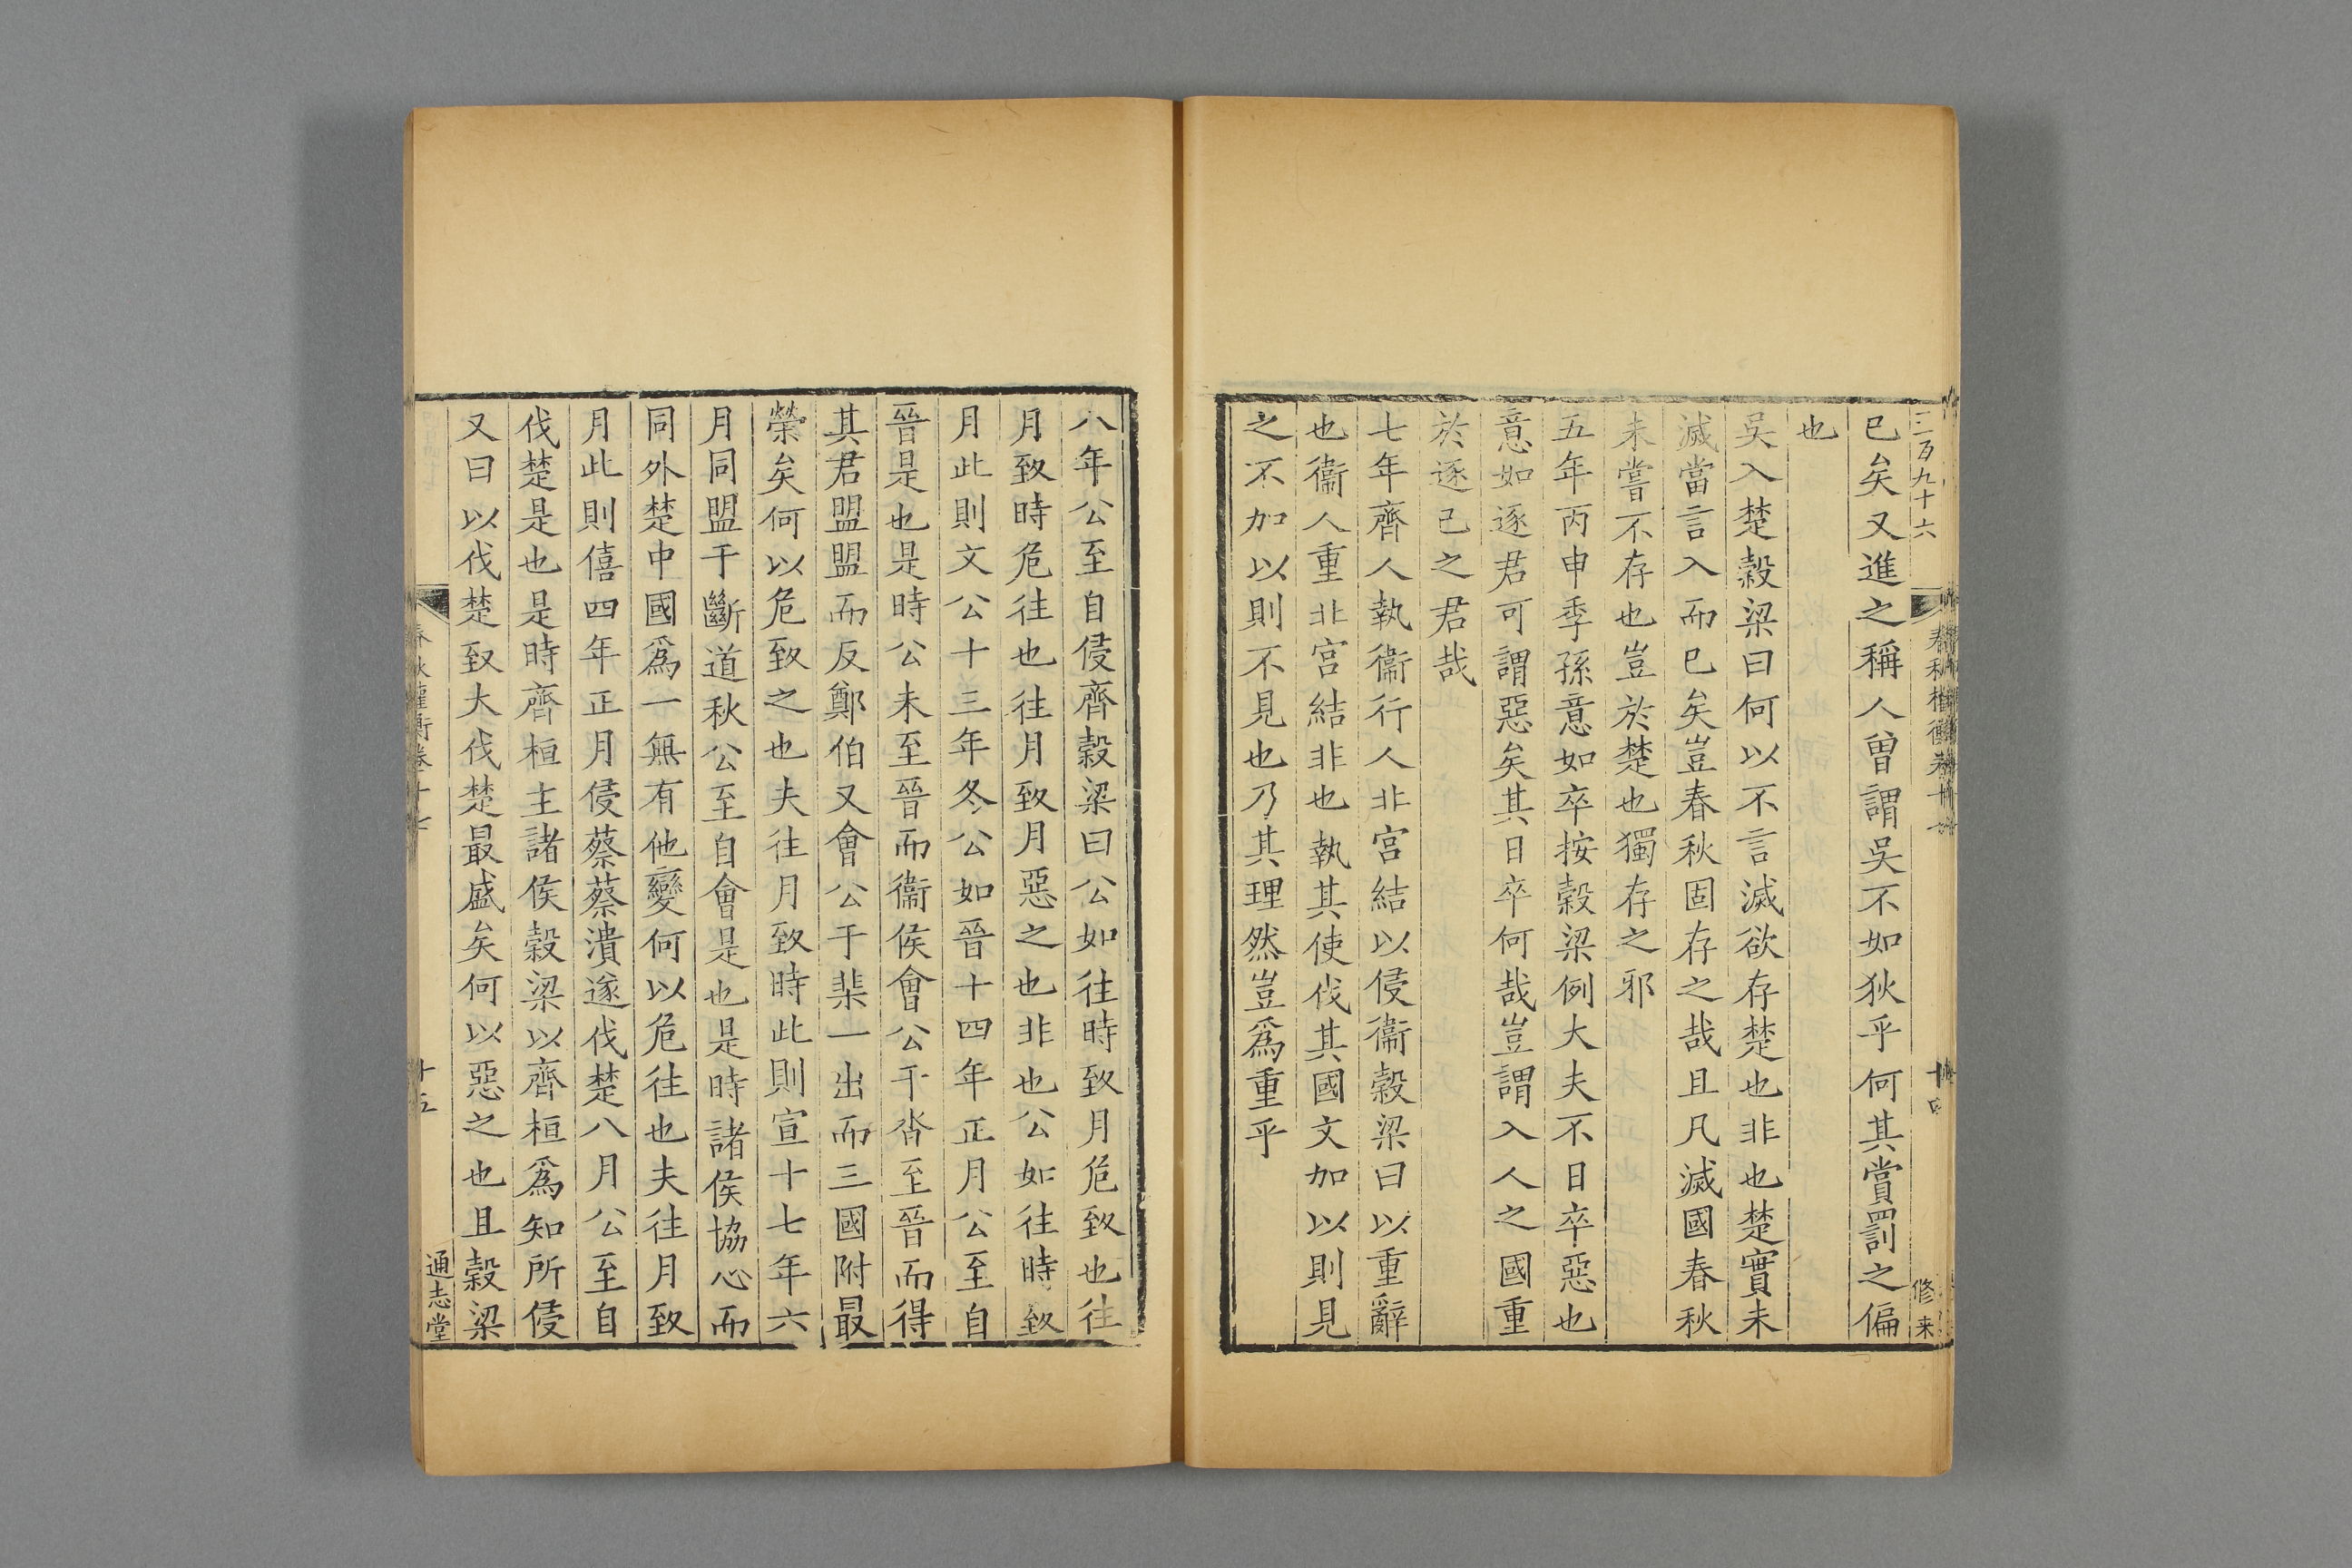 三百九十六
春秋權衡卷十七
十四
修來
已矣又進之稱人曾謂吳不如狄乎何其賞罰之偏
也
吳入楚穀梁曰何以不言滅欲存楚也非也楚實未
滅當言入而已矣豈春秋固存之哉且凡滅國春秋
未嘗不存也豈於楚也獨存之邪
五年丙申季孫意如卒按穀梁例大夫不日卒惡也
意如逐君可謂惡矣其日卒何哉豈謂入人之國重
於逐己之君哉
七年齊人執衞行人北宮結以侵衞穀梁曰以重辭
也衞人重北宮結非也執其使伐其國文加以則見
之不加以則不見也乃其理然豈爲重乎
八年公至自侵齊穀梁曰公如往時致月危致也往
月致時危往也往月致月惡之也非也公如往時致
月此則文公十三年冬公如晉十四年正月公至自
晉是也是時公未至晉而衞侯會公于沓至晉而得
其君盟盟而反鄭伯又會公于棐一出而三國附最
榮矣何以危致之也夫往月致時此則宣十七年六
月同盟于斷道秋公至自會是也是時諸侯協心而
同外楚中國爲一無有他變何以危往也夫往月致
月此則僖四年正月侵蔡蔡潰遂伐楚八月公至自
伐楚是也是時齊桓主諸侯穀梁以齊桓爲知所侵
又曰以伐楚致大伐楚最盛矣何以惡之也且穀梁
春秋權衡卷十七
十五
通志堂